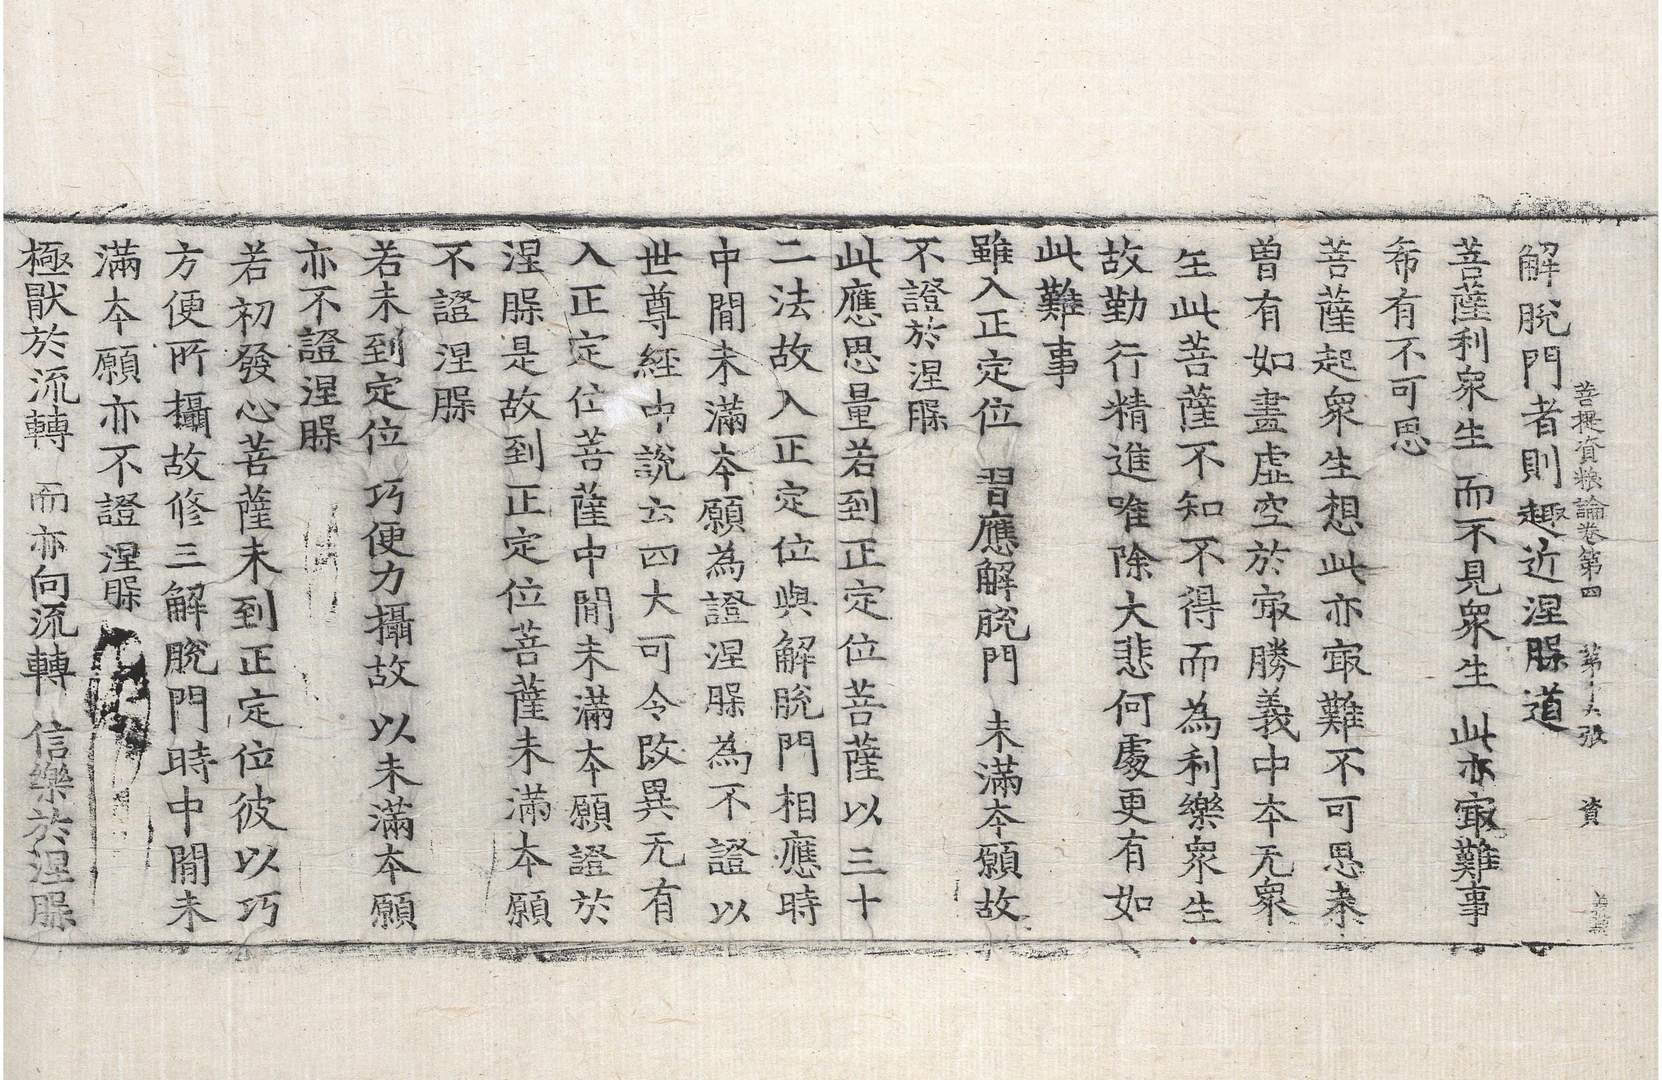 菩提資粮論卷第四 第十六張 資
解脫門者則趣近涅槃道
菩薩利衆生 而不見衆生 此亦㝡難事
希有不可思
菩薩起衆生想此亦㝡難不可思未
曾有如畫虛空於㝡勝義中本无衆
生此菩薩不知不得而為利樂衆生
故勤行精進唯除大悲何處更有如
此難事
雖入正定位 習應解脫門 未滿本願故
不證於涅槃
此應思量若到正定位菩薩以三十
二法故入正定位與解脫門相應時
中閒未滿本願為證涅槃為不證以
世尊經中說云四大可令改異无有
入正定位菩薩中閒未滿本願證於
涅槃是故到正定位菩薩未滿本願
不證涅槃
若未到定位 巧便力攝故 以未滿本願
亦不證涅槃
若初發心菩薩未到正定位彼以巧
方便所攝故修三解脫門時中閒未
滿本願亦不證涅槃
極猒於流轉 而亦向流轉 信樂於涅槃